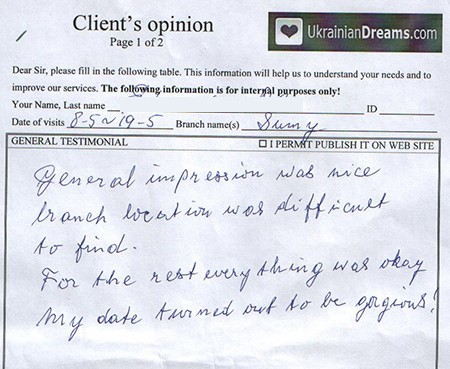 Client's opinion
Page 1 of 2
UkrainianDreams.com
Dear Sir, please fill in the following table. This information will help us to understand your needs and to
improve our services. The following information is for internal purposes only!
Your Name, Last name ID
Date of visits 8-5~19-5 Branch name(s) Sumy
GENERAL TESTIMONIAL ☐ I PERMIT PUBLISH IT ON WEB SITE
General impression was nice
branch location was difficult
to find.
For the rest everything was okay
My date turned out to be gorgious!